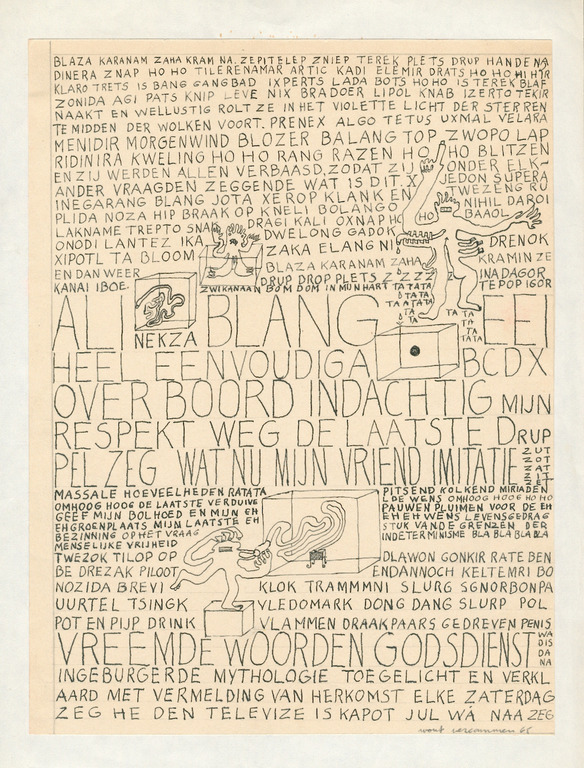 BLAZA KARANAM ZAHA KRAM NA. ZEPITELEP ZNIEP TEREK PLETS DRUP HANDE NA
DINERA ZNAP HO HO TILERENAMAR ARTIC KADI ELEMIR DRATS HO HO HI HIR
KLARO TRETS IS BANG GANGBAD IXPERTS LADA BOTS HOHO IS TEREK BLAF
ZONIDA AGI PATS KNIP LEVE NIX BRADOER LIPOL KNAB IZERTO TEKIR
NAAKT EN WELLUSTIG ROLT ZE IN HET VIOLETTE LICHT DER STERREN
TE MIDDEN DER WOLKEN VOORT. PRENEX ALGO TETUS UXMAL VELARA
MENIDIR MORGENWIND BLOZER BALANG TOP ZWOPO LAP
RIDINIRA KWELING HO HO RANG RAZEN HO HO BLITZEN
EN ZIJ WERDEN ALLEN VERBAASD, ZODAT ZIJ ONDER ELK-
ANDER VRAAGDEN ZEGGENDE WAT IS DIT. X JEDON SUPERA
INEGARANG BLANG JOTA XEROP KLANK EN TWEZENG RO
PLIDA NOZA HIP BRAAK OP KNELI BOLANGO NIHIL DAROI
LAKNAME TREPTO SNAK DRAGI KALI OXNAP HO HO HO BAAOL
ONODI LANTEZ IKA DWELONG GADOK DRENOK
XIPOTL TA BLOOM ZAKA ELANG NI KRAMIN ZE
EN DAN WEER BLAZA KARANAM ZAHA INADAGOR
KANAI IBOE DRUP DROP PLETS Z ZZZZ TE POP IGOR
ZWIKANAAN BOM DOM IN MIJN HART TATATA
TATATA
TATATA
TA
TA
ALI NEKZA BLANG EEI
TA TA
TA TA
TATATA
HEEL EENVOUDIG A BCDX
OVER BOORD INDACHTIG MIJN
RESPEKT WEG DE LAATSTE DRUP
PEL ZEG WAT NU MIJN VRIEND IMITATIE
ZUT
ZOT
ZAT
MASSALE HOEVEELHEDEN RATATA
OMHOOG HOOG DE LAATSTE VERDUIVE
GEEF MIJN BOLHOED EN MIJN EH
EH GROENPLAATS MIJN LAATSTE EH
BEZINNING OP HET VRAAG
MENSELIJKE VRIJHEID
PITSEND KOLKEND MIRIADEN
L DE WENS OMHOOG HOOG HO HO
PAUWEN PLUIMEN VOOR DE EH
EH EH WENS LEVENSGEDRAG
STUK VAN DE GRENZEN DER
INDETERMINISME BLA BLA BLA BLA
TWEZOK TILOP OP DLAWON GONKIR RATE BEN
BE DREZAK PILOOT ENDANNOCH KELTEMRI BO
NOZIDA BREVI KLOK TRAMMMNI SLURG SGNORBONPA
UURTEL TSINGK VLEDOMARK DONG DANG SLURP POL
POT EN PIJP DRINK VLAMMEN DRAAKPAARS GEDREVEN PENIS
VREEMDE WOORDEN GODSDIENST
WA
DIS
DA
NA
INGEBURGERDE MYTHOLOGIE TOEGELICHT EN VERKL
AARD MET VERMELDING VAN HERKOMST ELKE ZATERDAG
ZEG HE DEN TELEVIZE IS KAPOT JUL WA NAA ZEG
wout vercammen 65